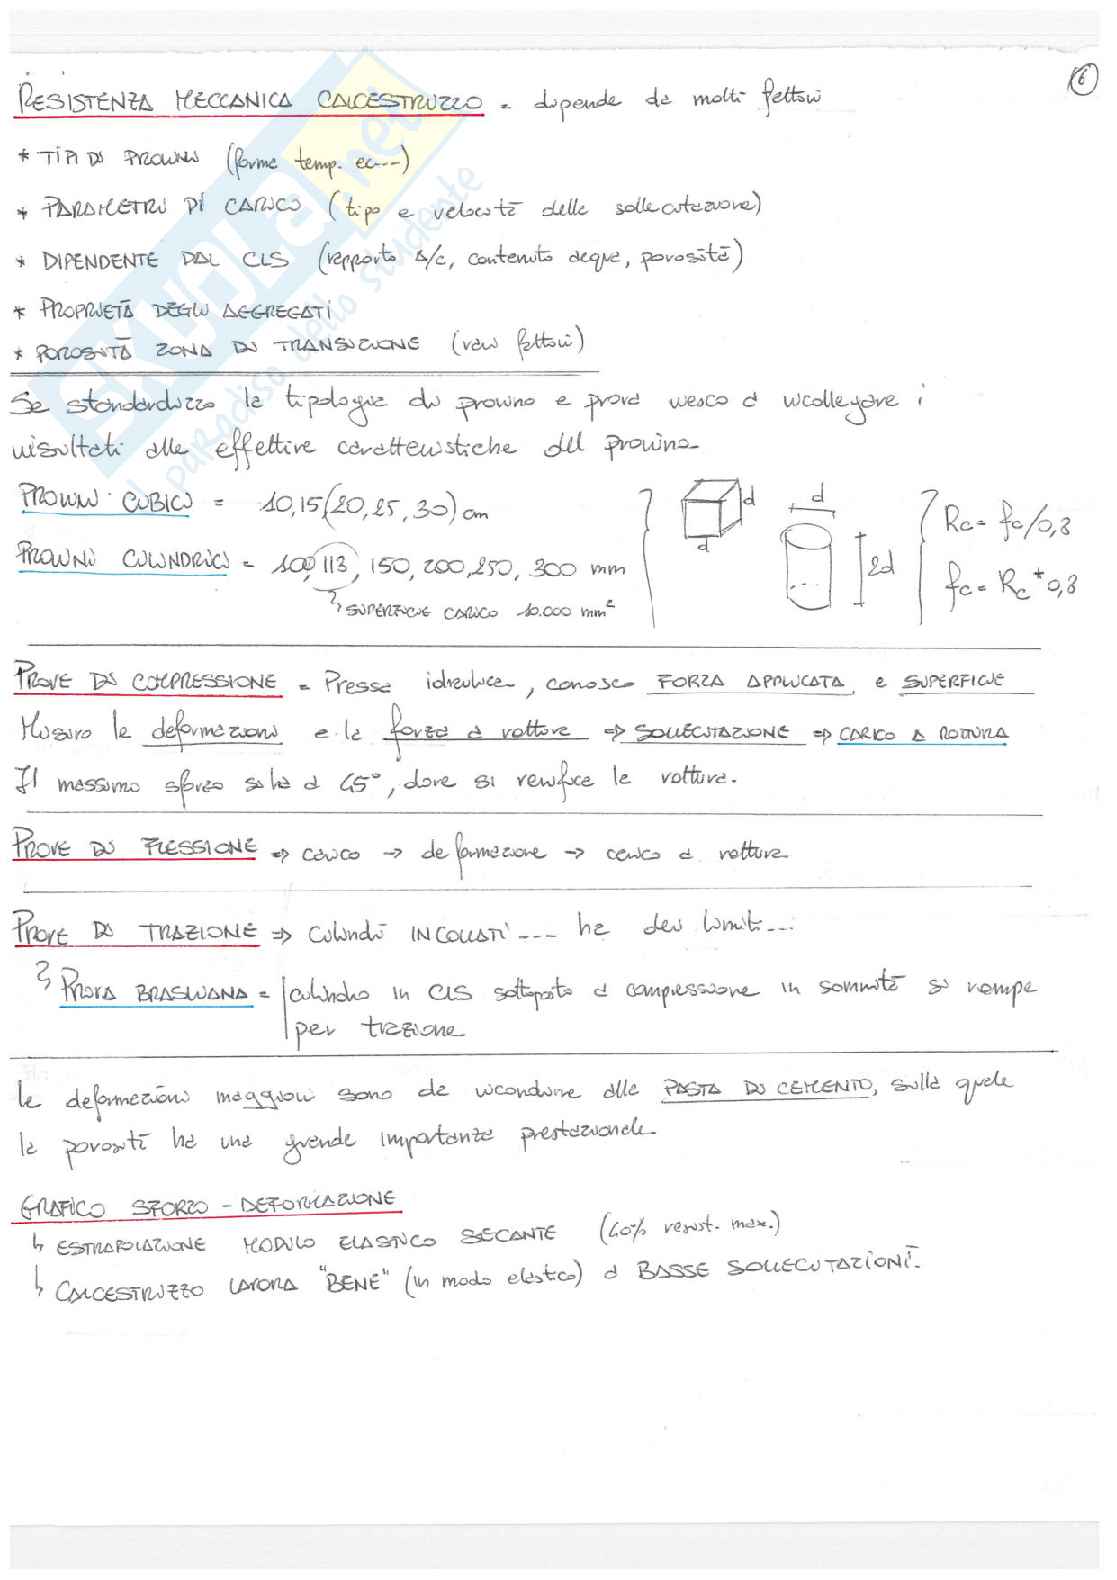 6
RESISTENZA MECCANICA CALCESTRUZZO = dipende da molti fattori
* TIPI DI PROVINI (forma temp. ec---)
* PARAMETRI DI CARICO (tipo e velocità della sollecitazione)
* DIPENDENTE DAL CLS (rapporto A/C, contenuto acqua, porosità)
* PROPRIETÀ DEGLI AGGREGATI
* POROSITÀ ZONA DI TRANSIZIONE (vari fattori)
Se standardizzo la tipologia di provino e prova riesco a ricollegare i
risultati alle effettive caratteristiche del provino-
PROVINI CUBICI = 10,15(20,25,30) cm
PROVINI CILINDRICI = 100,113,150,200,250,300 mm
SUPERFICIE CARICO 10.000 mm²
d
d
d
2d
Rc = fc/0,8
fc = Rc * 0,8
PROVE DI COMPRESSIONE = Pressa idraulica, conosco FORZA APPLICATA e SUPERFICIE
Misuro le deformazioni e la forza a rottura ⇒ SOLLECITAZIONE ⇒ CARICO A ROTTURA
Il massimo sforzo si ha a 45°, dove si verifica la rottura.
PROVE DI FLESSIONE ⇒ carico → deformazione → carico a rottura
PROVE DI TRAZIONE ⇒ cilindri INCOLLATI --- ha dei limiti---
PROVA BRASILIANA = cilindro in CLS sottoposto a compressione in sommità si rompe
per trazione
le deformazioni maggiori sono da ricondurre alla PASTA DI CEMENTO, sulla quale
la porosità ha una grande importanza prestazionale-
GRAFICO SFORZO - DEFORMAZIONE
↳ ESTRAPOLAZIONE MODULO ELASTICO SECANTE (40% resist. max.)
↳ CALCESTRUZZO LAVORA "BENE" (in modo elastico) a BASSE SOLLECITAZIONI.
SKUOLA.net
il paradiso dello studente